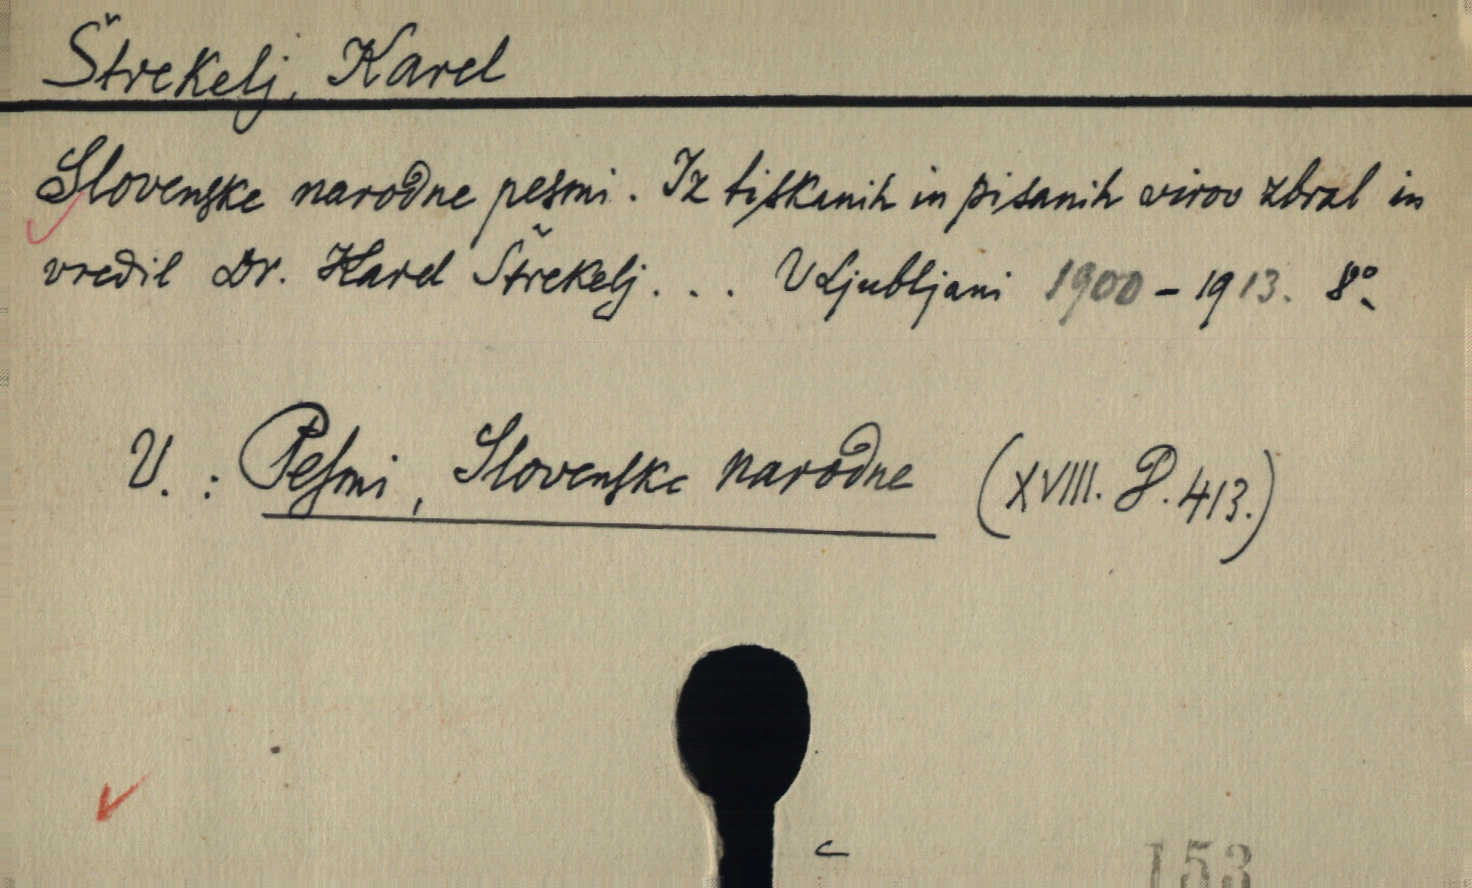 Štrekelj, Karel
Slovenske narodne pesmi. Iz tiskanih in pisanih virov zbral in
vredil Dr. Karel Štrekelj... V Ljubljani 1900-1913. 8º.
V.: Pesmi, Slovenske narodne (XVIII. P. 413.)
153